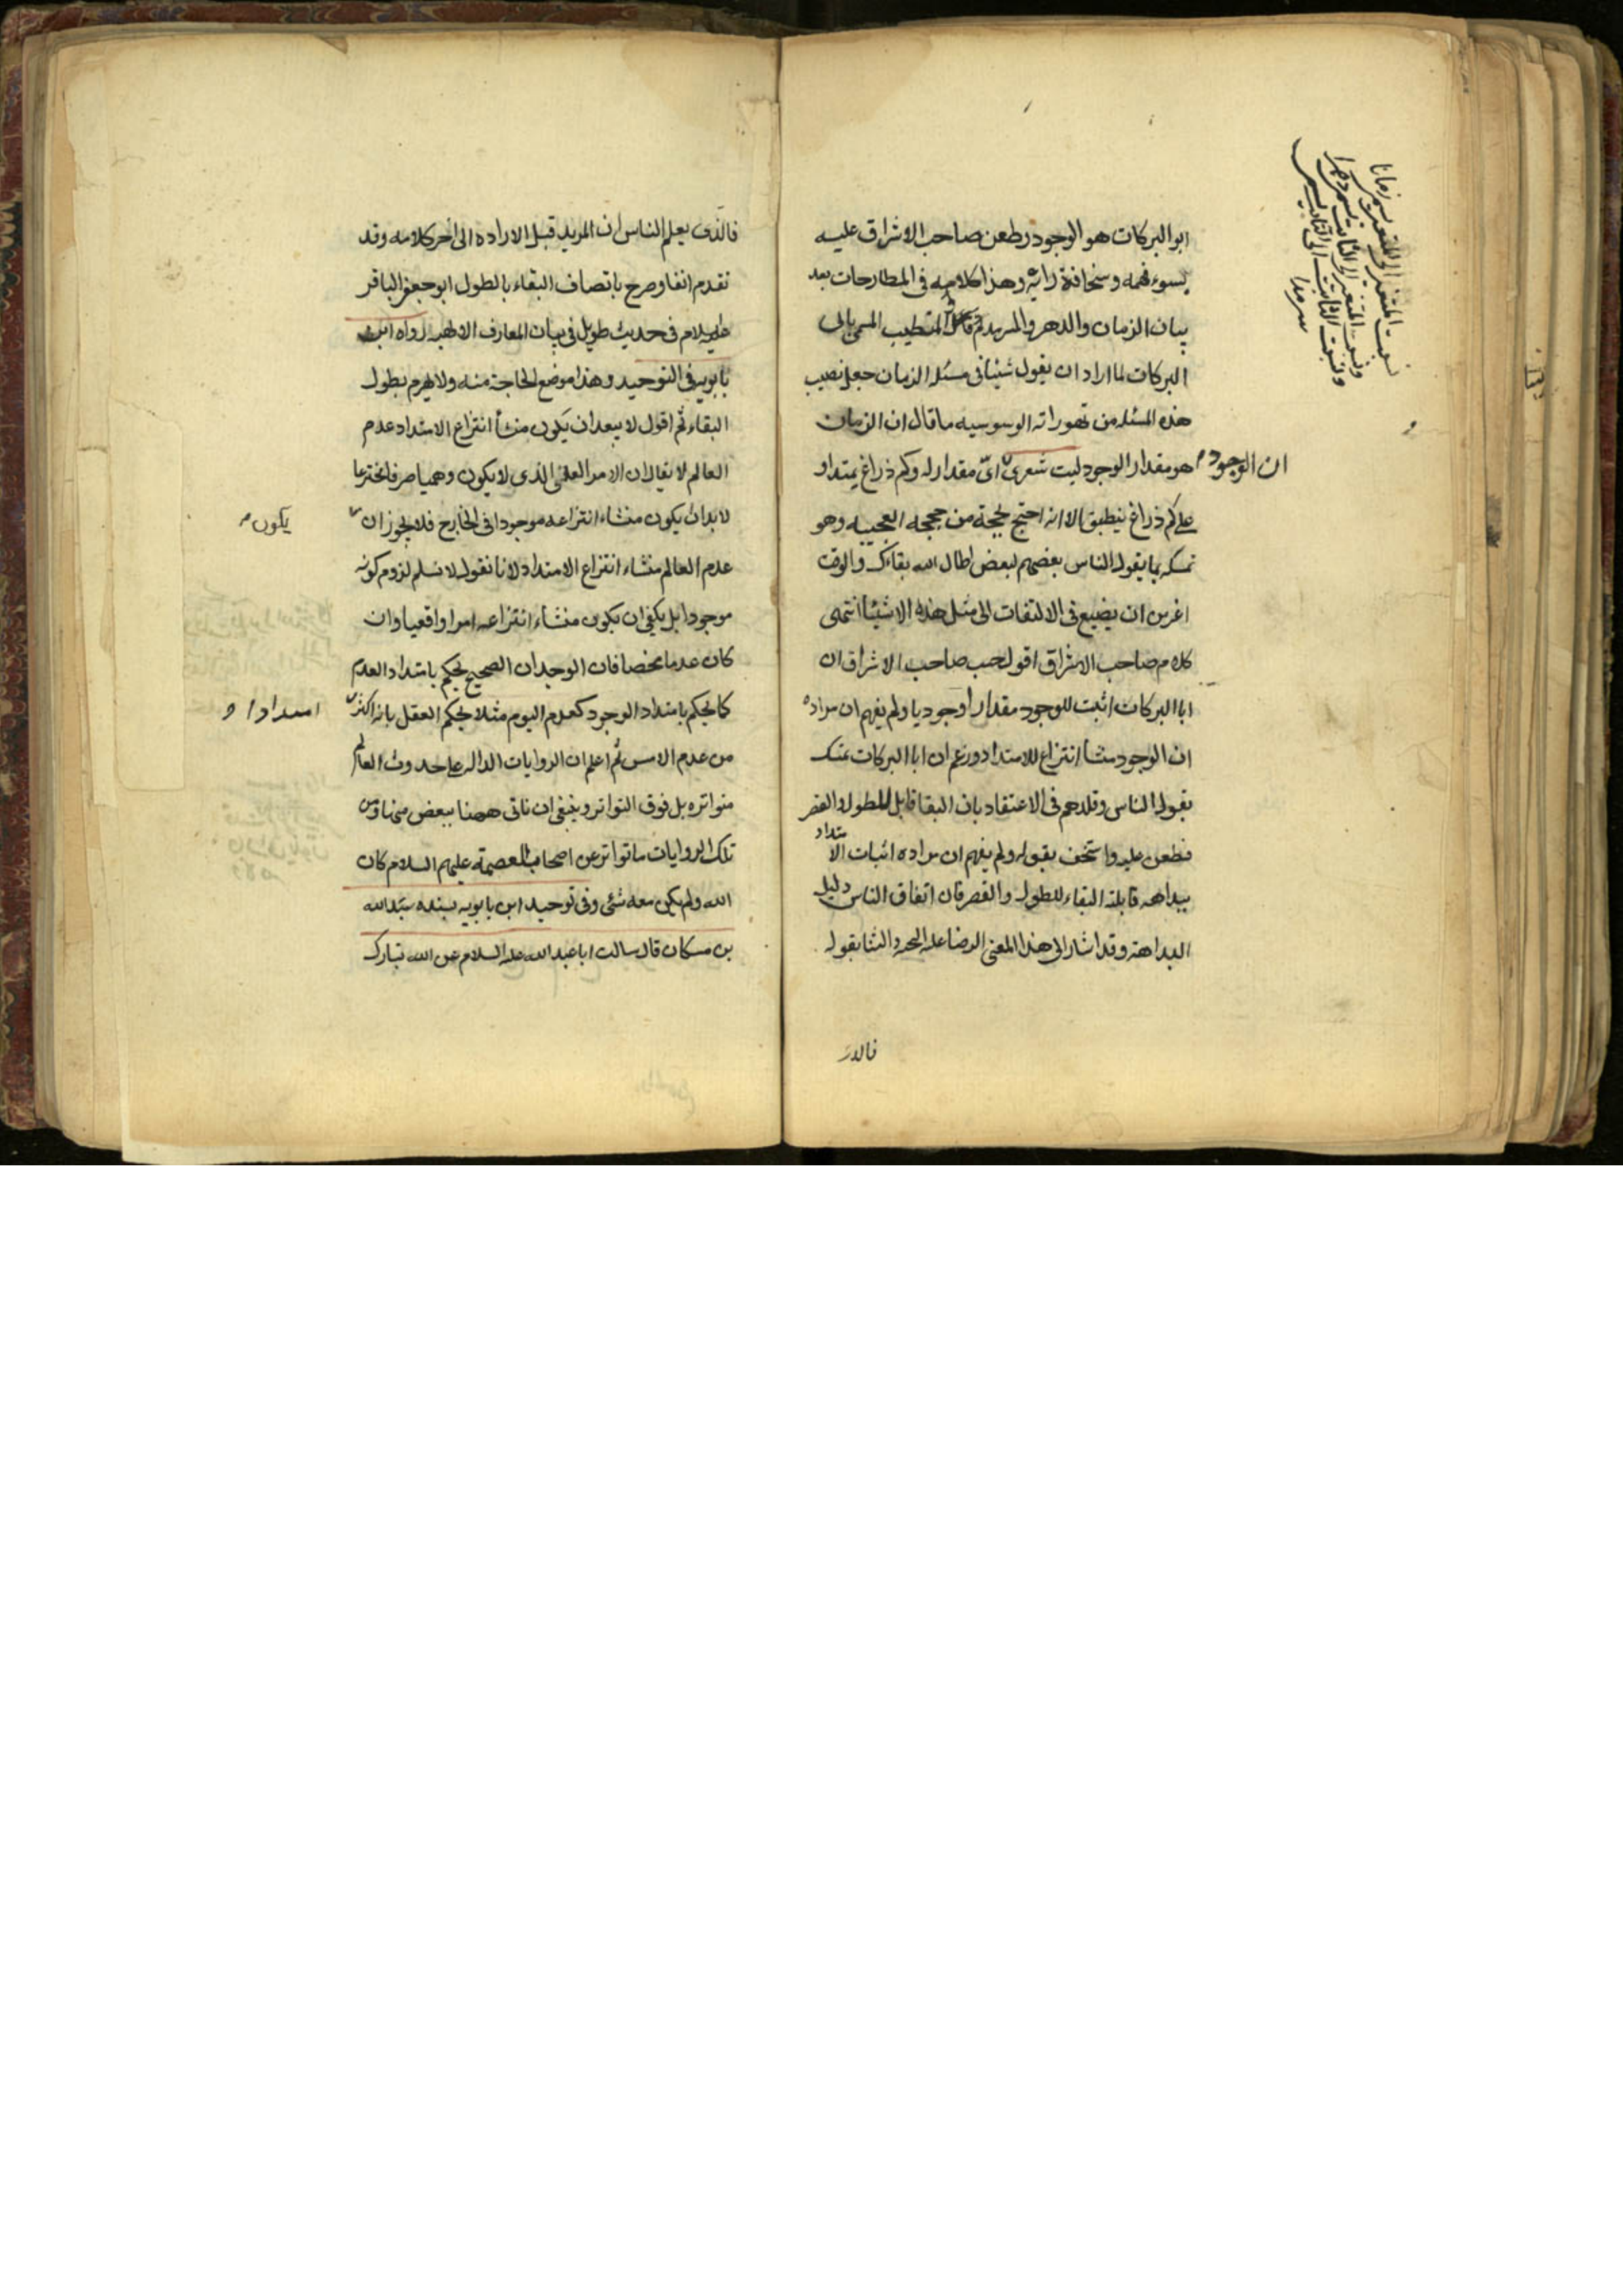 ابو البركات هو الوجود وطعن صاحب الاشراق عليه
بسوء فهمه وسخافة رايه وهذا كلامه فى المطارحات بعد
بيان الزمان والدهر والسرمد المتطبب المسمى بابى
البركات لما اراد ان يقول شيئا فى مسئلة الزمان جعل نصيب
هذه المسئله من تهوراته الوسوسيه ما قال ان الزمان
هو مقدار الوجود ليت شعرى اىّ مقدار له وكم ذراع يمتد او
على كم ذراع ينطبق الا انه احتج بحجة من حججه العجيبه وهو
تمسكه بما يقول الناس بعضهم لبعض اطال الله بقاءك والوقت
اعز من ان يضيع فى الالتفات الى مثل هذه الاشياء انتهى
كلام صاحب الاشراق اقول حسب صاحب الاشراق ان
ابا البركات اثبت للوجود مقدارا وجوديا ولم يفهم ان مراده
ان الوجود منشأ انتزاع للامتداد وزعم ان ابا البركات تمسك
بقول الناس وقلدهم فى الاعتقاد بان البقا قابل للطول والقصر
فطعن عليه واستخف بقوله ولم يفهم ان مراده اثبات الامتداد
ببداهة قابلية البقاء للطول والقصر فان اتفاق الناس دليل
البداهة وقد اشار الى هذا المعنى الرضا عليه التحية والثنا بقوله
فالذى
ان الوجود
نسبت المتغير الى المتغير يسمى زمانا
ونسبت المتغير الى الثابت يسمى دهرا
ونسبت الثابت الى الثابت يسمى
سرمدا
فالذى يعلم الناس ان المريد قبل الاراده الى اخر كلامه وقد
تقدم انفا وصرح باتصاف البقاء بالطول ابو جعفر الباقر
عليه السلام فى حديث طويل فى بيان المعارف الالهيه رواه ابن
بابويه فى التوحيد وهذا موضع الحاجة منه ولا يهرم بطول
البقاء ثم اقول لا يبعد ان يكون منشأ انتزاع الامتداد عدم
العالم لا يقال ان الامر العقلى الذى لا يكون وهميا صرفا مخترعا
لا بد ان يكون منشاء انتزاعه موجودا فى الخارج فلا يجوز ان
يكون
عدم العالم منشاء انتزاع الامتداد لانا نقول لا نسلم لزوم كونه
موجودا بل يكفى ان يكون منشاء انتزاعه امرا واقعيا وان
كان عدما محضا فان الوجدان الصحيح يحكم بامتداد العدم
كما يحكم بامتداد الوجود كعدم اليوم مثلا يحكم العقل بانه اكثر
امتدادا
من عدم الامس ثم اعلم ان الروايات الداله على حدوث العالم
متواتره بل فوق التواتر وينبغى ان ناتى ههنا ببعض منها ومن
تلك الروايات ما تواتر عن اصحاب العصمة عليهم السلام كان
الله ولم يكن معه شئى وفى توحيد ابن بابويه بسنده عبد الله
بن مسكان قال سالت ابا عبد الله عليه السلام عن الله تبارك